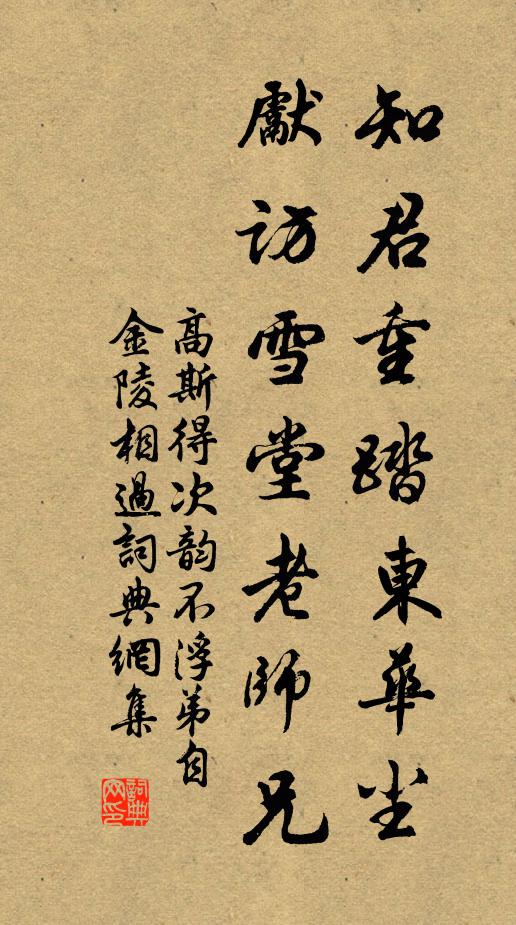 知君重踏東華尘
獻访雪堂老師兄
高斯得次韵不浮弟自
金陵相過詞典網集
詞典網印